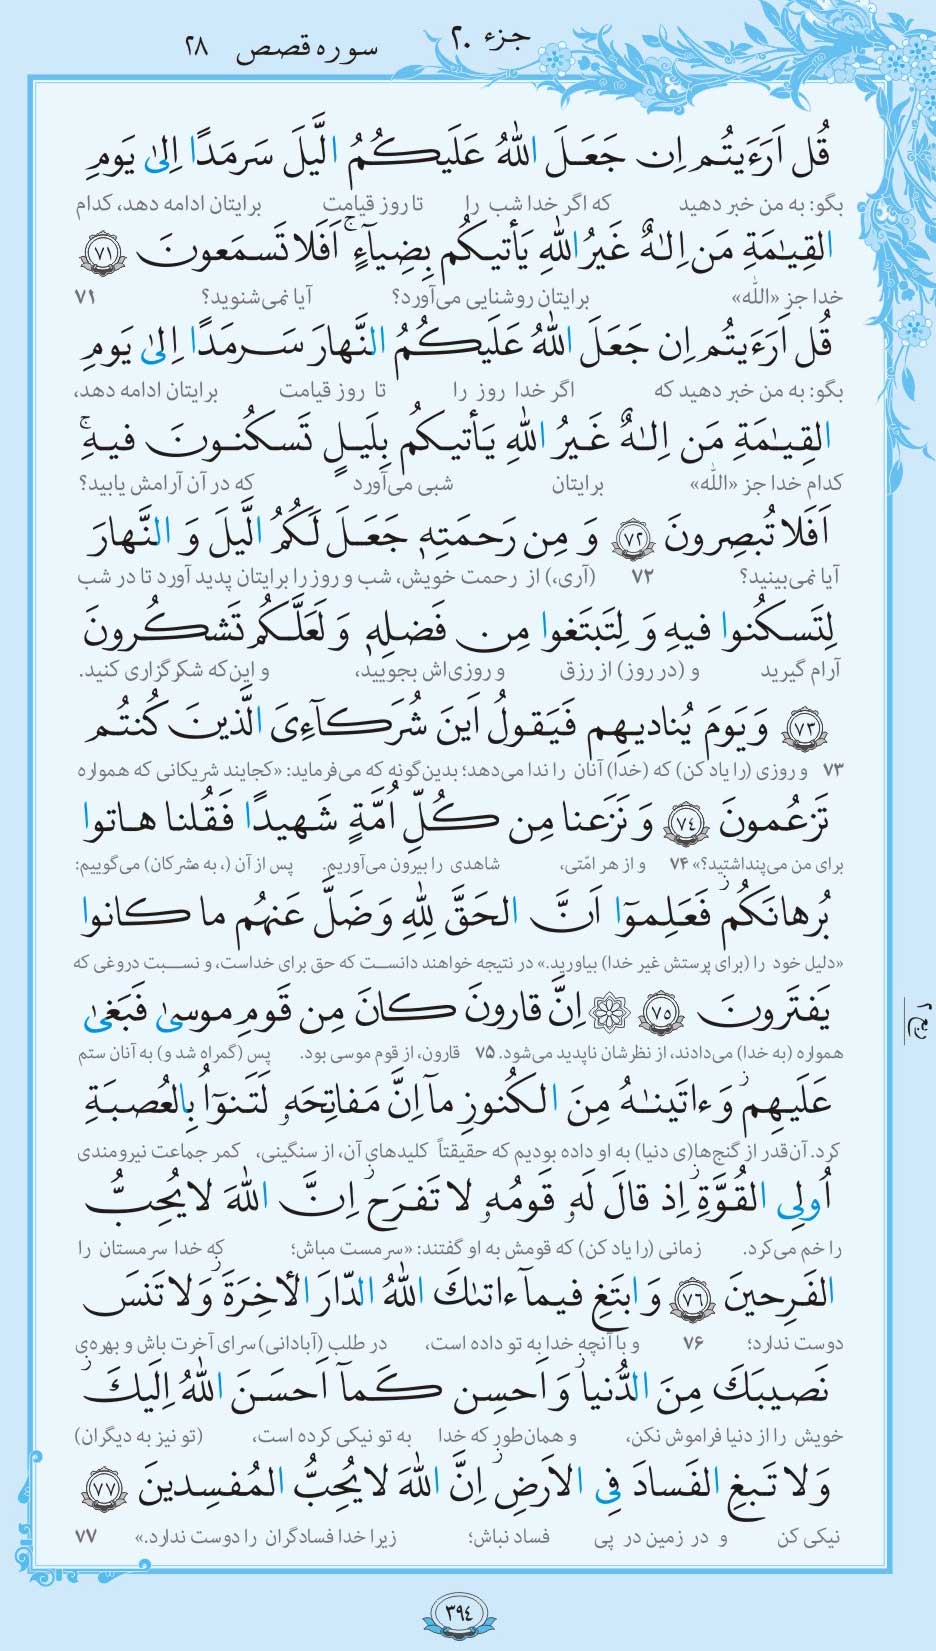 جزء ۲۰ سوره قصص ۲۸
قُل اَرَءَیتُم اِن جَعَلَ اللّٰهُ عَلَیکُمُ الَّیلَ سَرمَدًا اِلیٰ یَومِ
بگو: به من خبر دهید که اگر خدا شب را تا روز قیامت برایتان ادامه دهد، کدام
القِیـٰمَةِ مَن اِلـٰهٌ غَیرُ اللّٰهِ یَأتیکُم بِضِیآءٍ ۚ اَفَلا تَسمَعونَ ﴿۷۱﴾
خدا جز «الله» برایتان روشنایی می‌آورد؟ آیا نمی‌شنوید؟ ۷۱
قُل اَرَءَیتُم اِن جَعَلَ اللّٰهُ عَلَیکُمُ النَّهارَ سَرمَدًا اِلیٰ یَومِ
بگو: به من خبر دهید که اگر خدا روز را تا روز قیامت برایتان ادامه دهد،
القِیـٰمَةِ مَن اِلـٰهٌ غَیرُ اللّٰهِ یَأتیکُم بِلَیلٍ تَسکُنونَ فیهِ ۚ
کدام خدا جز «الله» برایتان شبی می‌آورد که در آن آرامش یابید؟
اَفَلا تُبصِرونَ ﴿۷۲﴾ وَ مِن رَحمَتِهٖ جَعَلَ لَکُمُ الَّیلَ وَ النَّهارَ
آیا نمی‌بینید؟ ۷۲ (آری،) از رحمت خویش، شب و روز را برایتان پدید آورد تا در شب
لِتَسکُنوا فیهِ وَ لِتَبتَغوا مِن فَضلِهٖ وَ لَعَلَّکُم تَشکُرونَ
آرام گیرید و (در روز) از رزق و روزی‌اش بجویید، و این‌که شکرگزاری کنید.
﴿۷۳﴾ وَ یَومَ یُنادیهِم فَیَقولُ اَینَ شُرَکآءِیَ الَّذینَ کُنتُم
۷۳ و روزی (را یاد کن) که (خدا) آنان را ندا می‌دهد؛ بدین‌گونه که می‌فرماید: «کجایند شریکانی که همواره
تَزعُمونَ ﴿۷۴﴾ وَ نَزَعنا مِن کُلِّ اُمَّةٍ شَهیدًا فَقُلنا هاتوا
برای من می‌پنداشتید؟» ۷۴ و از هر امّتی، شاهدی را بیرون می‌آوریم. پس از آن (، به مشرکان) می‌گوییم:
بُرهانَکُم فَعَلِموٓا اَنَّ الحَقَّ لِلّٰهِ وَ ضَلَّ عَنهُم ما کانوا
«دلیل خود را (برای پرستش غیر خدا) بیاورید.» در نتیجه خواهند دانست که حق برای خداست، و نسبت دروغی که
یَفتَرونَ ﴿۷۵﴾ ۞ اِنَّ قارونَ کانَ مِن قَومِ موسیٰ فَبَغیٰ
همواره (به خدا) می‌دادند، از نظرشان ناپدید می‌شود. ۷۵ قارون، از قوم موسی بود. پس (گمراه شد و) به آنان ستم
عَلَیهِم ۖ وَ ءاتَینـٰهُ مِنَ الکُنوزِ مآ اِنَّ مَفاتِحَهٗ لَتَنوٓاُ بِالعُصبَةِ
کرد. آن‌قدر از گنج‌ها(ی دنیا) به او داده بودیم که حقیقتاً کلیدهای آن، از سنگینی، کمر جماعت نیرومندی
اُولِی القُوَّةِ اِذ قالَ لَهٗ قَومُهٗ لا تَفرَح ۖ اِنَّ اللّٰهَ لا یُحِبُّ
را خم می‌کرد. زمانی (را یاد کن) که قومش به او گفتند: «سرمست مباش؛ که خدا سرمستان را
الفَرِحینَ ﴿۷۶﴾ وَ ابتَغِ فیمآ ءاتىٰكَ اللّٰهُ الدّارَ الأخِرَةَ ۖ وَ لا تَنسَ
دوست ندارد؛ ۷۶ و با آنچه خدا به تو داده است، در طلب (آبادانی) سرای آخرت باش و بهره‌ی
نَصیبَكَ مِنَ الدُّنیا ۖ وَ اَحسِن کَمآ اَحسَنَ اللّٰهُ اِلَیكَ ۖ
خویش را از دنیا فراموش نکن، و همان‌طور که خدا به تو نیکی کرده است، (تو نیز به دیگران)
وَ لا تَبغِ الفَسادَ فِی الاَرضِ ۖ اِنَّ اللّٰهَ لا یُحِبُّ المُفسِدینَ ﴿۷۷﴾
نیکی کن و در زمین در پی فساد نباش؛ زیرا خدا فسادگران را دوست ندارد.» ۷۷
ربع ۲
۳۹۴